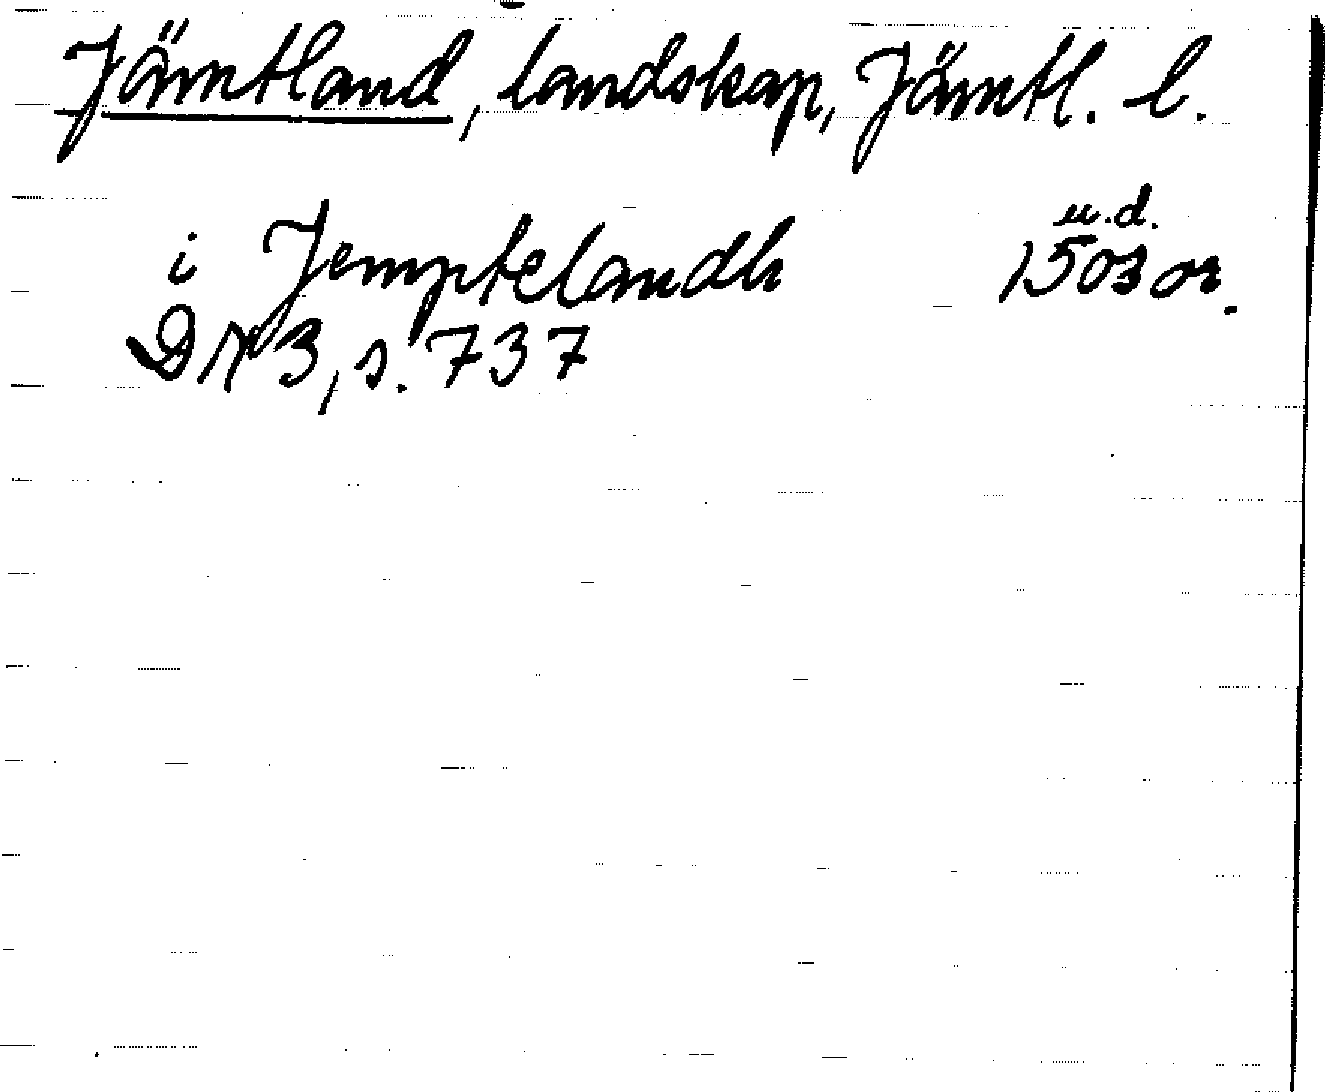 Jämtland, landskap, Jämtl. l.
i Jemptelandh 1503 or. u.d.
DN 3, s. 737